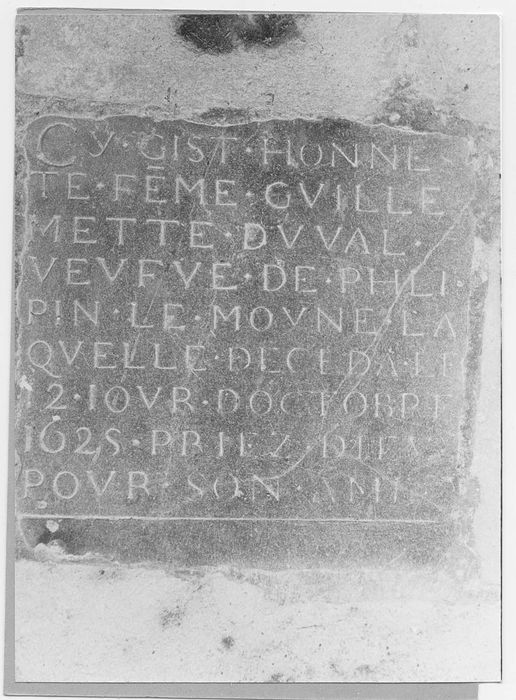 CY·GIST·HONNE
TE·FĒME·GVILLE
METTE·DVVAL·
VEVFVE·DE·PHLI
PIN·LE·MOVNE·LA
QVELLE·DECEDA·LE
2·IOVR·DOCTOBRE
1625·PRIEZ·DIEV
POVR·SON·AME